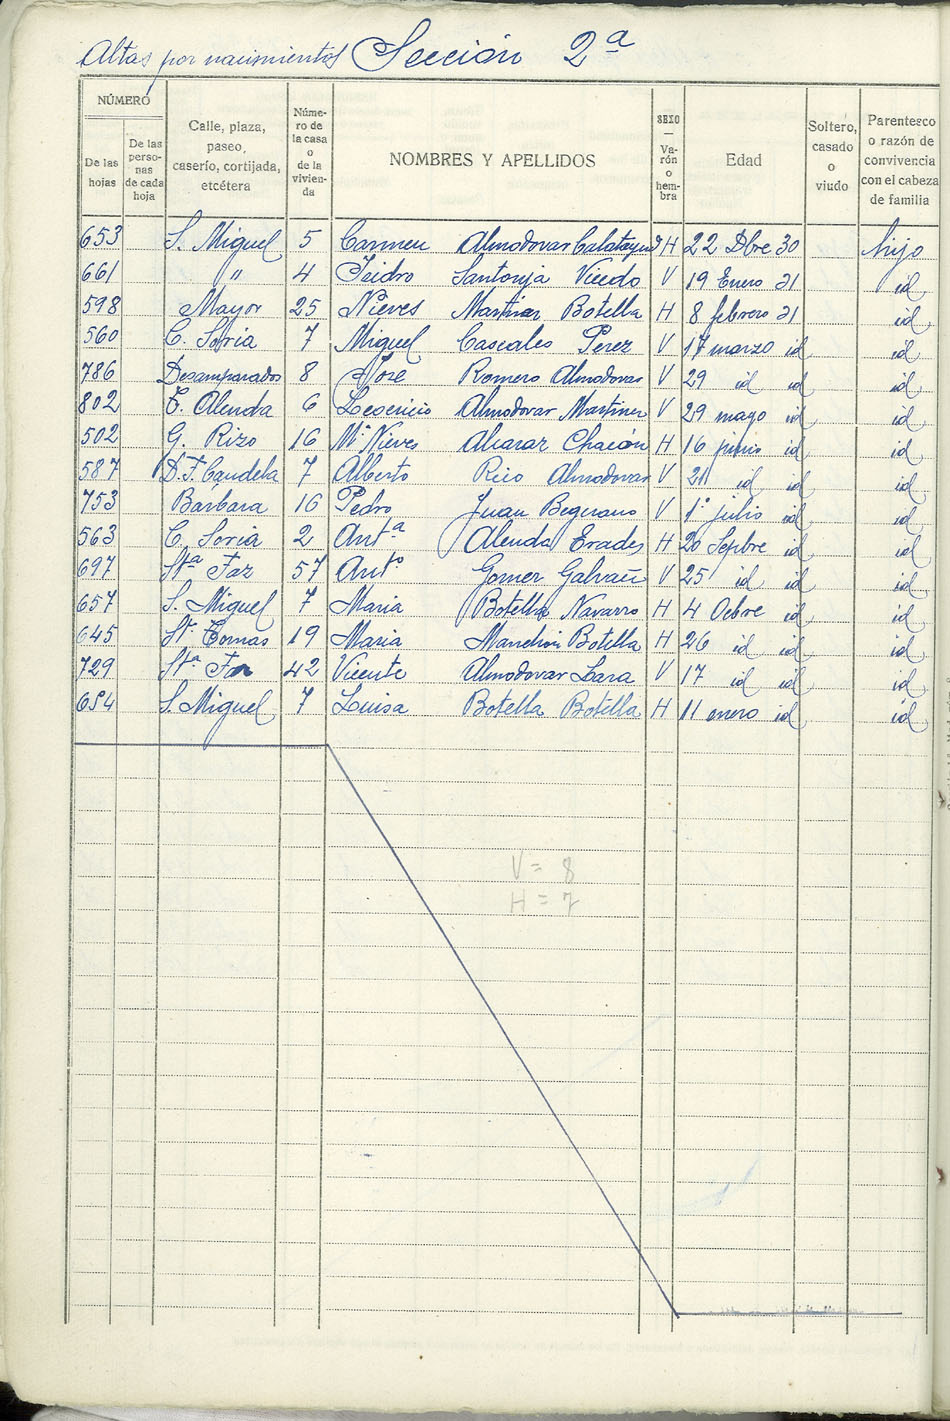 Altas por nacimientos Sección 2ª
NÚMERO
De las hojas
De las perso-nas de cada hoja
Calle, plaza, paseo, caserío, cortijada, etcétera
Núme-ro de la casa o de la vivien-da
NOMBRES Y APELLIDOS
SEXO — Va-rón o hem-bra
Edad
Soltero, casado o viudo
Parentesco o razón de convivencia con el cabeza de familia
653 S. Miguel 5 Carmen Almodovar Calatayud H 22 Dbre 30 hijo
661 " 4 Isidro Santonja Vicedo V 19 Enero 31 id
598 Mayor 25 Nieves Martinez Botella H 8 febrero 31 id
560 C. Soria 7 Miguel Cascales Perez V 17 marzo id id
786 Desamparados 8 Jose Romero Almodovar V 29 id id id
802 T. Alenda 6 Almodovar Martinez V 29 mayo id id
502 G. Rizo 16 Mª Nieves Alcaraz Chacón H 16 junio id id
587 D. F. Candela 7 Alberto Rico Almodovar V 21 id id id
753 Barbara 16 Pedro Juan V 1º julio id id
563 C. Soria 2 Antª Alenda Erades H 20 Sepbre id id
697 Stª Faz 57 Antº Gomez Galvañ V 25 id id id
657 S. Miguel 7 Maria Botella Navarro H 4 Ocbre id id
645 Sto Tomas 19 Maria Manchón Botella H 26 id id id
729 Stª Faz 42 Vicente Almodovar Lara V 17 id id id
654 S. Miguel 7 Luisa Botella Botella H 11 enero id id
V = 8
H = 7